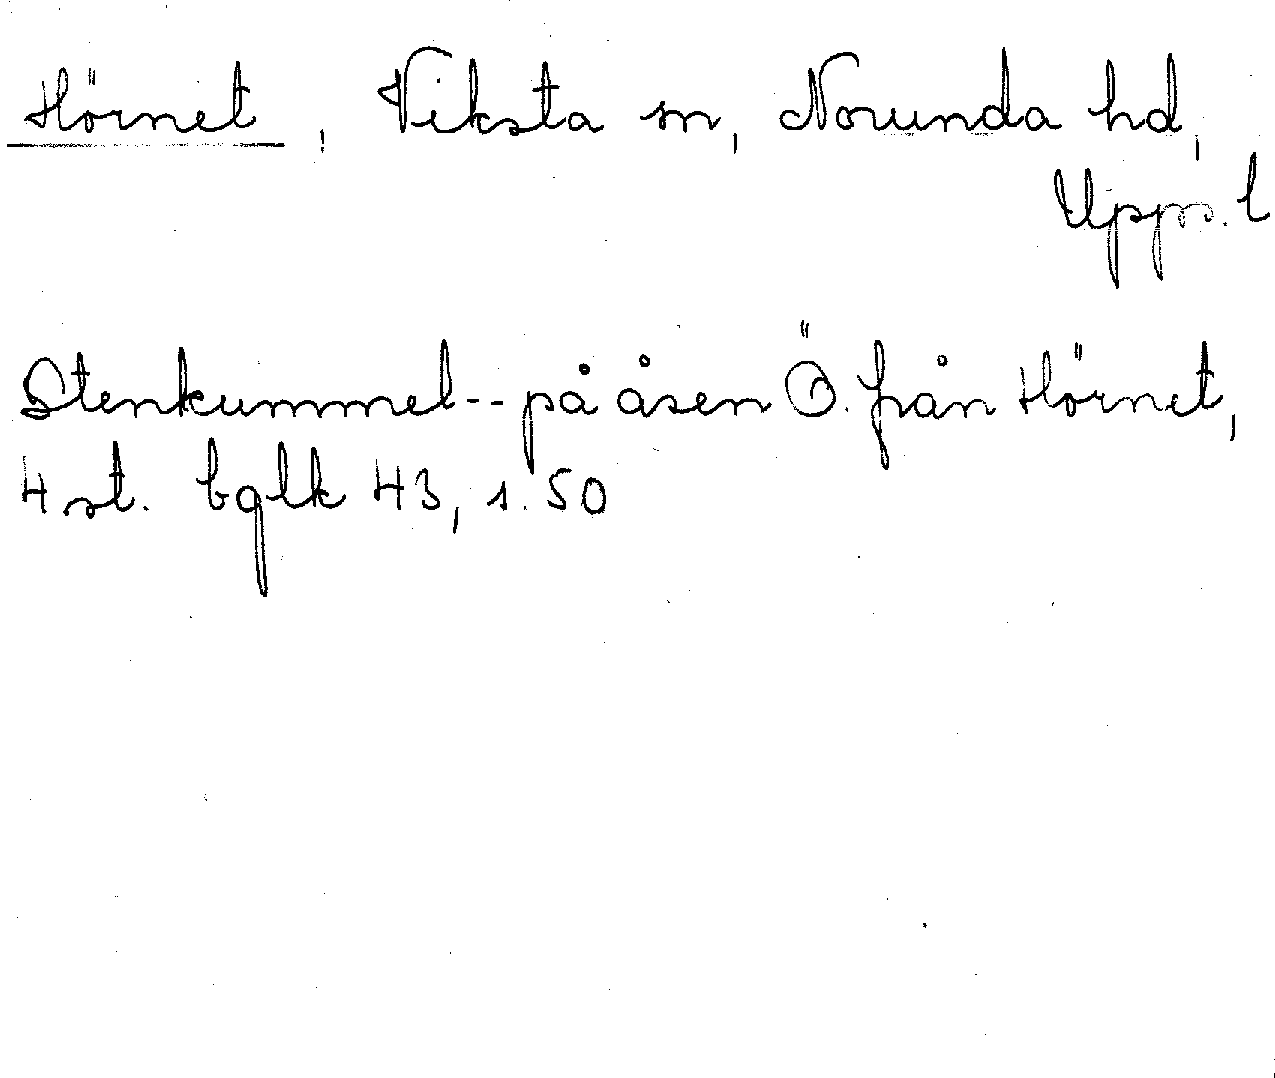 Hörnet, Viksta sn, Norunda hd,
Upps. l
Stenkummel -- på åsen Ö. från Hörnet,
4 st. bglk 43, s. 50